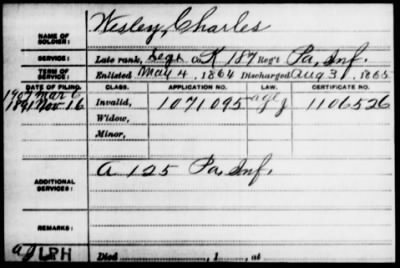 NAME OF SOLDIER: Wesley, Charles
SERVICE: Late rank, Sergt Co. K, 187 Reg't Pa. Inf.
TERM OF SERVICE: Enlisted May 4, 1864 Discharged Aug 3, 1865
DATE OF FILING. CLASS. APPLICATION NO. LAW. CERTIFICATE NO.
1907 Mar 6
1891 Nov 16 Invalid, 1071095 1106526
Widow,
Minor,
ADDITIONAL SERVICES: A 125 Pa. Inf.
REMARKS:
LPH Died , 1 , at